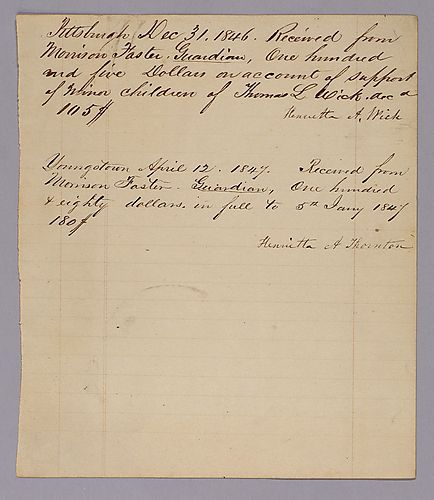 Pittsburgh Dec 31. 1846. Received from
Morrison Foster. Guardian, One hundred
and five Dollars on account of support
of Minor children of Thomas L Wick. dec d
105$
Henrietta A. Wick
Youngstown April 12. 1847. Received from
Morrison Foster. Guardian, One hundred
& eighty dollars. in full to 5th Jany 1847
180$
Henrietta A Thornton